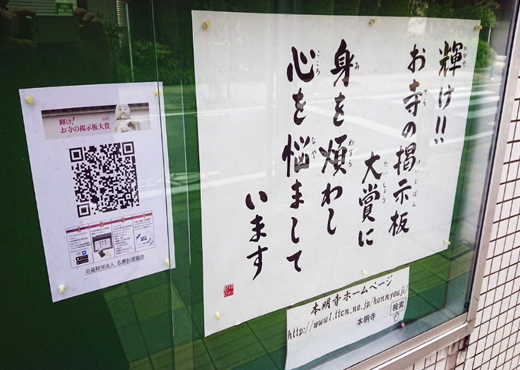 輝け!!
お寺の掲示板
大賞に
身を煩わし
心を悩まして
います
輝け!
お寺の掲示板大賞
公益財団法人 仏教伝道協会
本明寺ホームページ
http://www1.ttcn.ne.jp/honmyouji/
本明寺
検索